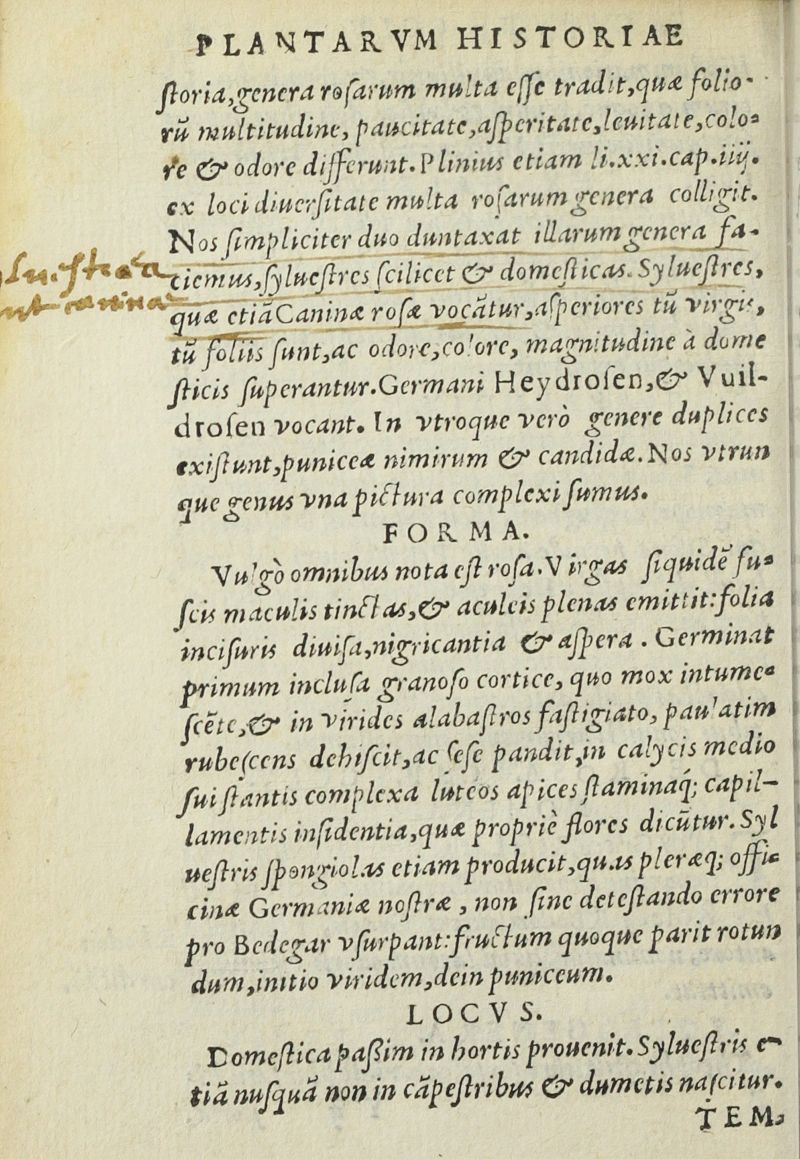 PLANTARVM HISTORIAE
ſtoria,genera roſarum multa eſſe tradit,quæ folio-
rũ multitudine, paucitate,aſperitate,leuitate,colo-
re & odore differunt.Plinius etiam li.xxi.cap.iiij.
ex loci diuerſitate multa roſarum genera colligit.
Nos ſimpliciter duo duntaxat illarum genera fa-
ciemus,ſylueſtres ſcilicet & domeſticas. Sylueſtres,
quæ etiã Caninæ roſæ vocãtur,aſperiores tũ virgis,
tũ foliis ſunt,ac odore,colore, magnitudine à dome
ſticis ſuperantur.Germani Heydroſen,& Vuil-
droſen vocant. In vtroque verò genere duplices
exiſtunt,puniceæ nimirum & candidæ.Nos vtrun
que genus vna pictura complexi ſumus.
FORMA.
Vulgò omnibus nota eſt roſa.Virgas ſiquidẽ fu-
ſcis maculis tinctas,& aculeis plenas emittit:folia
inciſuris diuiſa,nigricantia & aſpera. Germinat
primum incluſa granoſo cortice, quo mox intume-
ſcẽte,& in virides alabaſtros faſtigiato, paulatim
rubeſcens dehiſcit,ac ſeſe pandit,in calycis medio
ſui ſtantis complexa luteos apices ſtaminaq́; capil-
lamentis inſidentia,quæ propriè flores dicũtur.Syl
ueſtris ſpongiolas etiam producit,quas pleræq; offi
cinæ Germaniæ noſtræ, non ſine deteſtando errore
pro Bedegar vſurpant:fructum quoque parit rotun
dum,initio viridem,dein puniceum.
LOCVS.
Domeſtica paßim in hortis prouenit.Sylueſtris e-
tiã nuſquã non in cãpeſtribus & dumetis naſcitur.
TEM-